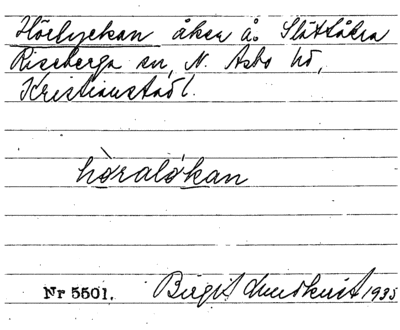 Hörlyckan åker å. Slättåkra
Riseberga sn, N. Åsbo hd,
Kristianstad l.
hòralókan
Nr 5501. Birgit Lundkvist 1935